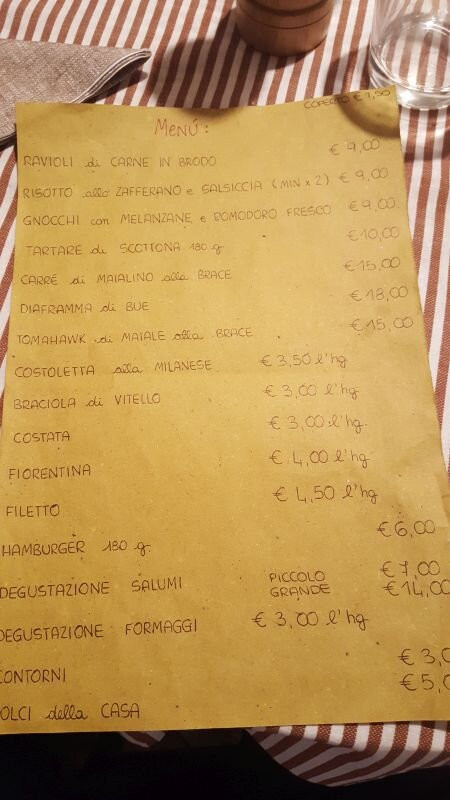 COPERTO € 1,50
MENÚ:
RAVIOLI di CARNE IN BRODO € 9,00
RISOTTO allo ZAFFERANO e SALSICCIA (MIN x 2) € 9,00
GNOCCHI con MELANZANE e POMODORO FRESCO € 9,00
TARTARE di SCOTTONA 180 g €10,00
CARRÉ di MAIALINO alla BRACE €15,00
DIAFRAMMA di BUE €18,00
TOMAHAWK di MAIALE alla BRACE €15,00
COSTOLETTA alla MILANESE € 3,50 l'hg
BRACIOLA di VITELLO € 3,00 l'hg
COSTATA € 3,00 l'hg
FIORENTINA € 4,00 l'hg
FILETTO € 4,50 l'hg
HAMBURGER 180 g € 6,00
DEGUSTAZIONE SALUMI PICCOLO € 7,00
GRANDE € 14,00
DEGUSTAZIONE FORMAGGI € 3,00 l'hg
CONTORNI € 3,0
OLCI della CASA € 5,0